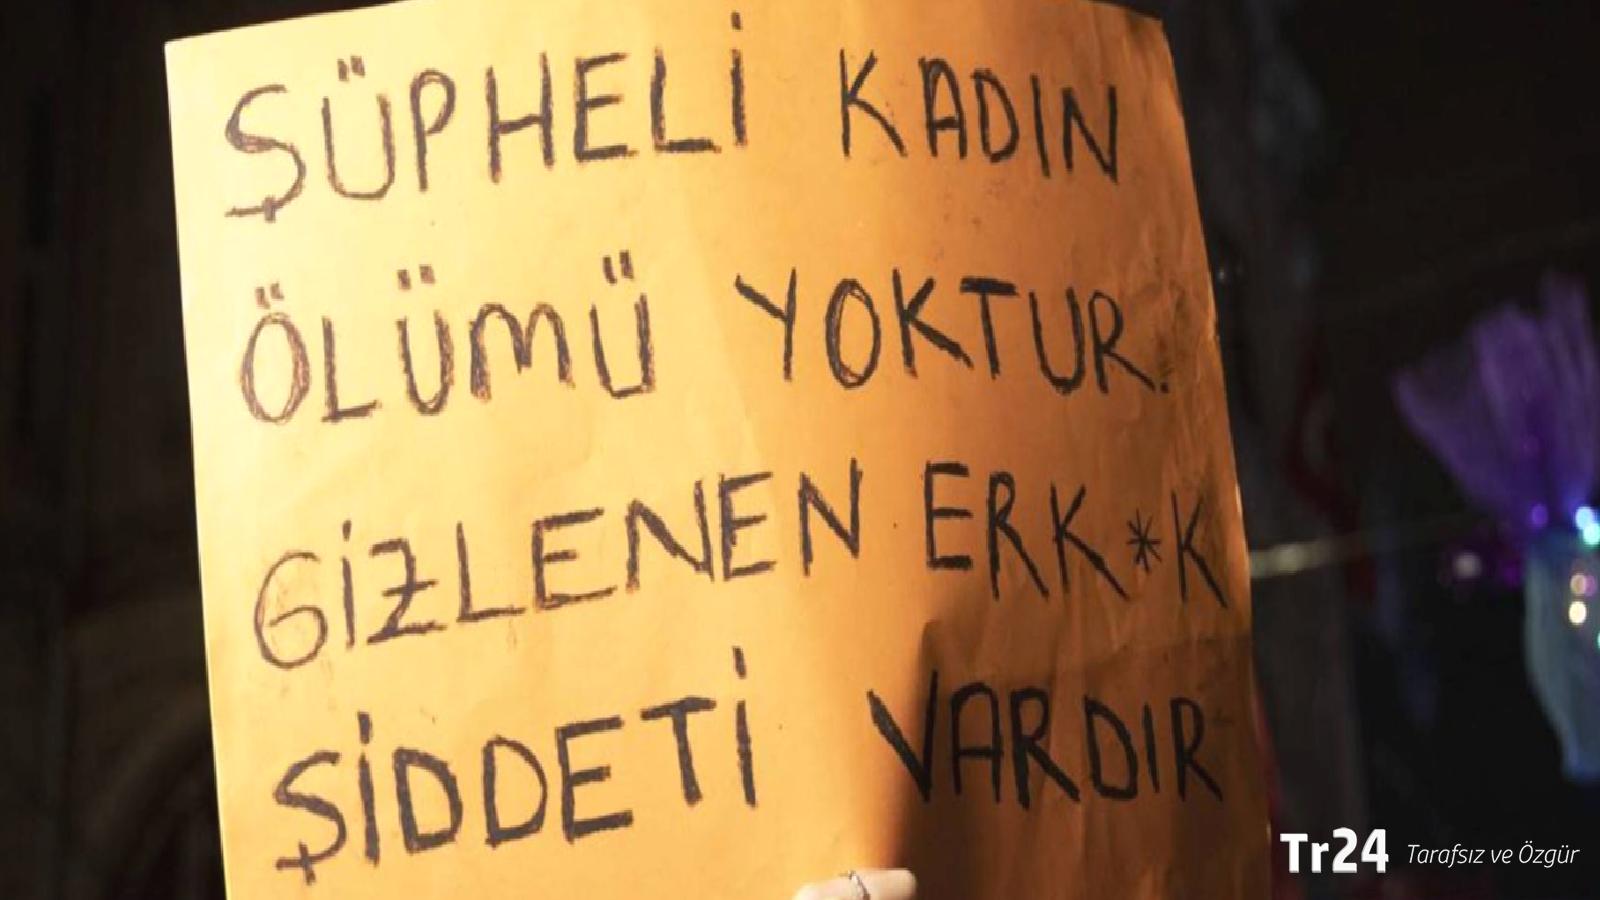 ŞÜPHELİ KADIN
ÖLÜMÜ YOKTUR.
GİZLENEN ERK*K
ŞİDDETİ VARDIR
Tr24 Tarafsız ve Özgür